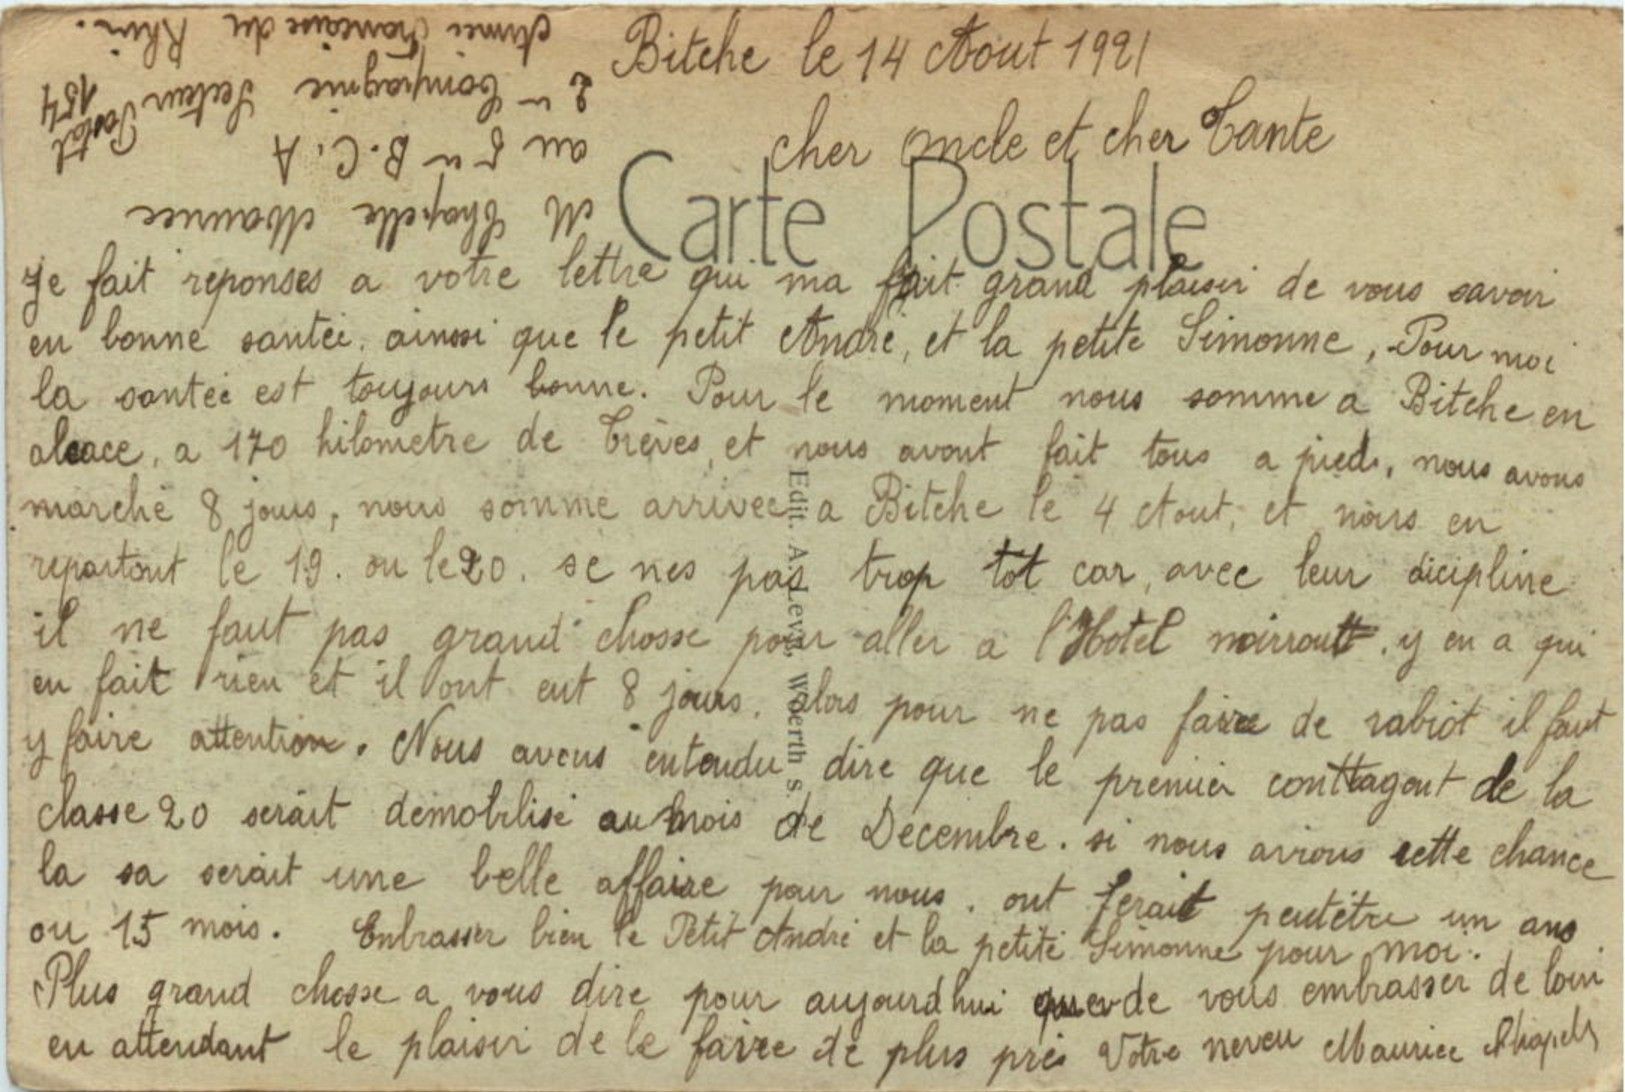 Bitche le 14 Aout 1921
cher oncle et cher Tante
M Chapelle Maurice
au 5e B.C.A
2e Compagnie Secteur Postal 154
Armée Francaise du Rhin.
Carte Postale
Je fait reponses a votre lettre qui ma fait grand plaisir de vous savoir
en bonne santée. ainssi que le petit André, et la petite Simonne, Pour moi
la santée est toujours bonne. Pour le moment nous somme a Bitche en
alsace, a 170 kilometre de Trèves, et nous avont fait tous a pied, nous avons
marché 8 jours, nous somme arrivee a Bitche le 4 Aout, et nous en
repartont le 19. ou le 20. se nes pas trop tot car, avec leur dicipline
il ne faut pas grand chosse pour aller a l'Hotel . y en a qui
en fait rien et il ont eut 8 jours. alors pour ne pas faire de rabiot il faut
y faire attention. Nous avons entendu dire que le premier conttagent de la
classe 20 serait démobilisé au mois de Decembre. si nous avions cette chance
la sa serait une belle affaire pour nous. ont ferait peutètre un ans
ou 15 mois. Enbrasser bien le Petit André et la petite Simonne pour moi.
Plus grand chosse a vous dire pour aujourdhui que de vous embrasser de loin
en attendant le plaisir de le faire de plus près Votre neveu Maurice Chapelle
Edit. A. Levy, Woerth s. S.